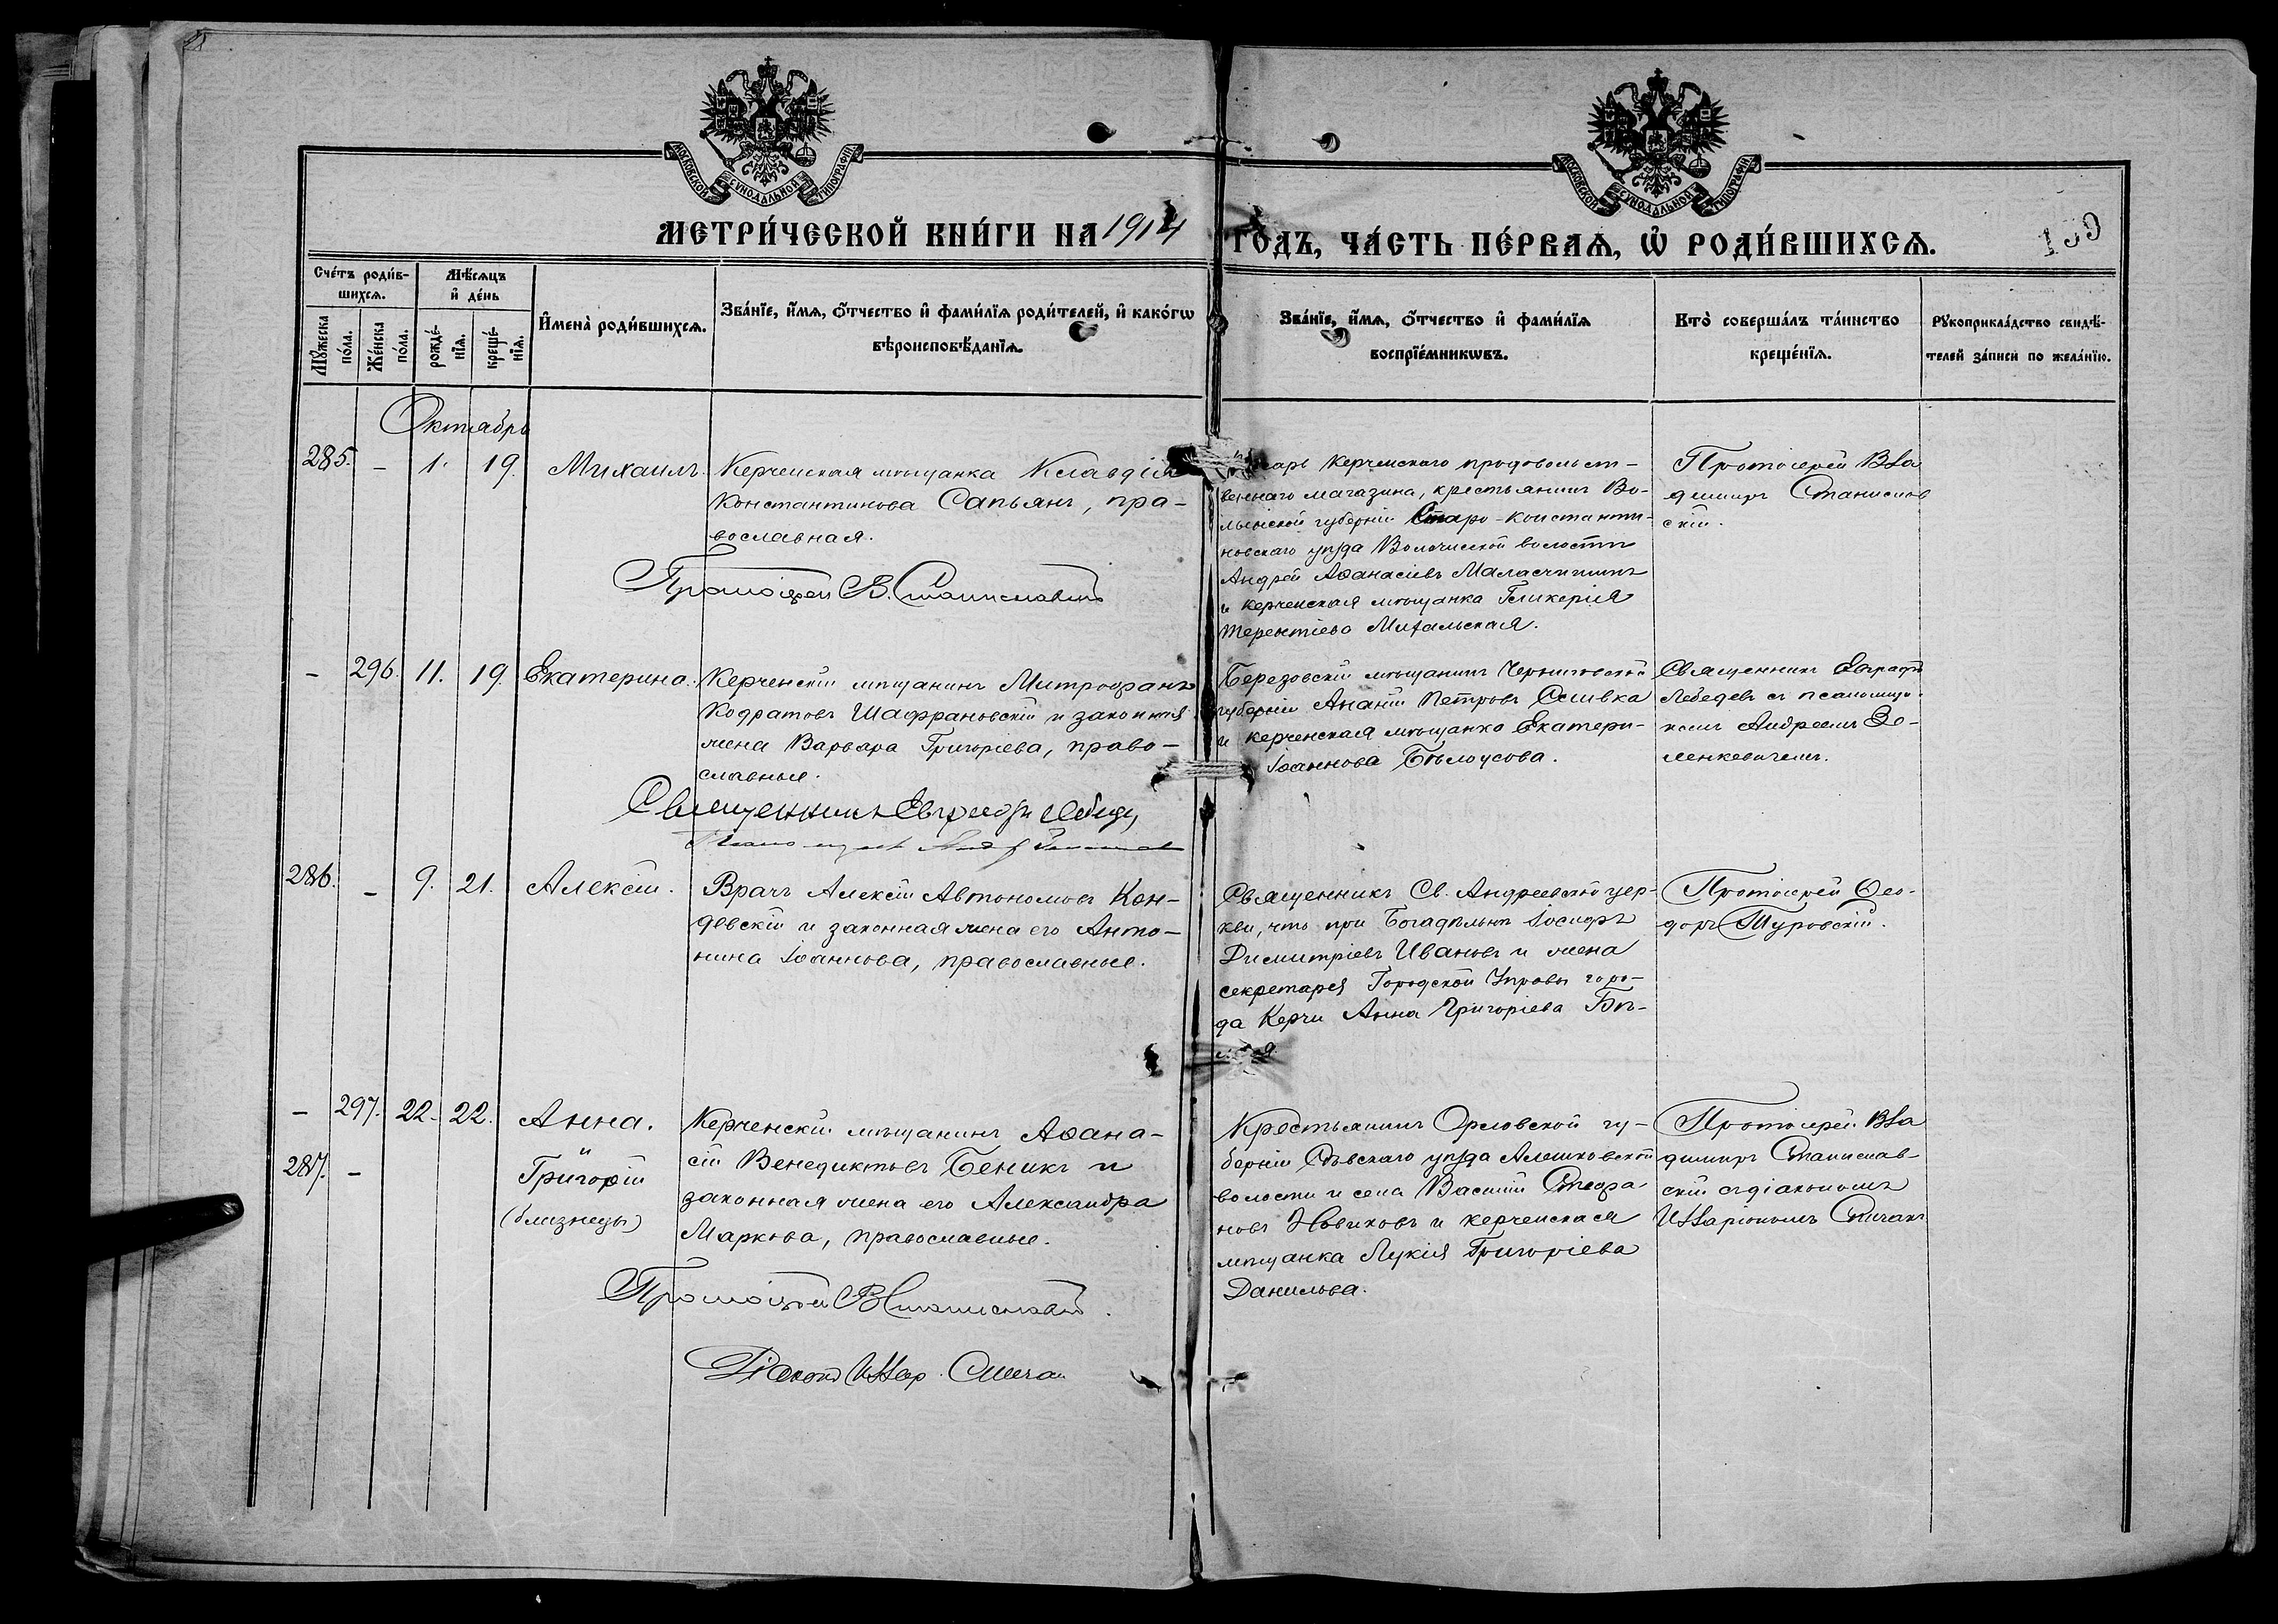 МОСКОВСКОЙ СѴНОДАЛЬНОЙ ТИПОГРАФИИ
МОСКОВСКОЙ СѴНОДАЛЬНОЙ ТИПОГРАФИИ
МЕТРИ́ЧЕСКОЙ КНИ́ГИ НА 1914 ГОДЪ, ЧА́СТЬ ПЕ́РВАѦ, Ѡ҆ РОДИ́ВШИХСѦ.
Сче́тъ роди́в-
шихсѧ.
Мꙋ́жеска
по́ла.
Же́нска
по́ла.
Мѣ́сѧцъ
и҆ де́нь
рожде́-
нїѧ.
креще́-
нїѧ.
И҆мена̀ роди́вшихсѧ.
Зва́нїе, и҆́мѧ, ѻ҆́тчество и҆ фами́лїѧ роди́телей, и҆ како́гѡ
вѣроисповѣ́данїѧ.
Зва́нїе, и҆́мѧ, ѻ҆́тчество и҆ фами́лїѧ
воспрїе́мникѡвъ.
Кто̀ соверша́лъ та́инство
креще́нїѧ.
Рꙋкоприкла́дство свидѣ́-
телей за́писи по жела́нїю.
Октябрь
285. - 1. 19. Михаилъ.
Керченская мѣщанка Клавдія
Константинова Сапьянъ, пра-
вославная.
Протоіерей В. Станиславскій
Керченскаго продовольст-
веннаго магазина, крестьянинъ Во-
лынской губерніи Старо-Константи-
новскаго уѣзда Волочиской волости
Андрей Аѳанасіевъ
и керченская мѣщанка Гликерія
Терентіева Михальская.
Протоіерей Вла
димиръ Станислав
скій.
- 296. 11. 19. Екатерина.
Керченскій мѣщанинъ Митрофанъ
Кодратовъ Шафрановскій и законная
жена Варвара Григоріева, право-
славные.
Священникъ Евграфъ Лебедевъ
Березовскій мѣщанинъ Черниговской
губерніи Ананій Петровъ Сливка
и керченская мѣщанка Екатери-
Іоаннова Бѣлоусова.
Священникъ Евграфъ
Лебедевъ съ псаломщи-
комъ Андреемъ Зе-
ленкевичемъ.
286. - 9. 21. Алексій.
Врачъ Алексій Автономовъ Кон-
девскій и законная жена его Анто-
нина Іоаннова, православные.
Священникъ Св. Андреевской цер-
кви, что при Богадѣльнѣ Іосифъ
Димитріевъ Ивановъ и жена
секретаря Городской Управы горо-
да Керчи Анна Григоріева Бѣ-
Протоіерей Ѳео-
доръ Туровскій.
- 297. 22. 22. Анна.
287. - и
Григорій
(близнецы)
Керченскій мѣщанинъ Аѳана-
сій Венедиктовъ Беникъ и
законная жена его Александра
Маркова, православные.
Протоіерей В Станиславскій.
Діаконъ Иллар.
Крестьянинъ Орловской гу-
берніи Сѣвскаго уѣзда Алешковской
волости и села Василій Стефа-
новъ Новиковъ и керченская
мѣщанка Лукія Григоріева
Данилова.
Протоіерей Вла
димиръ Станислав-
скій съ діакономъ
Илларіономъ